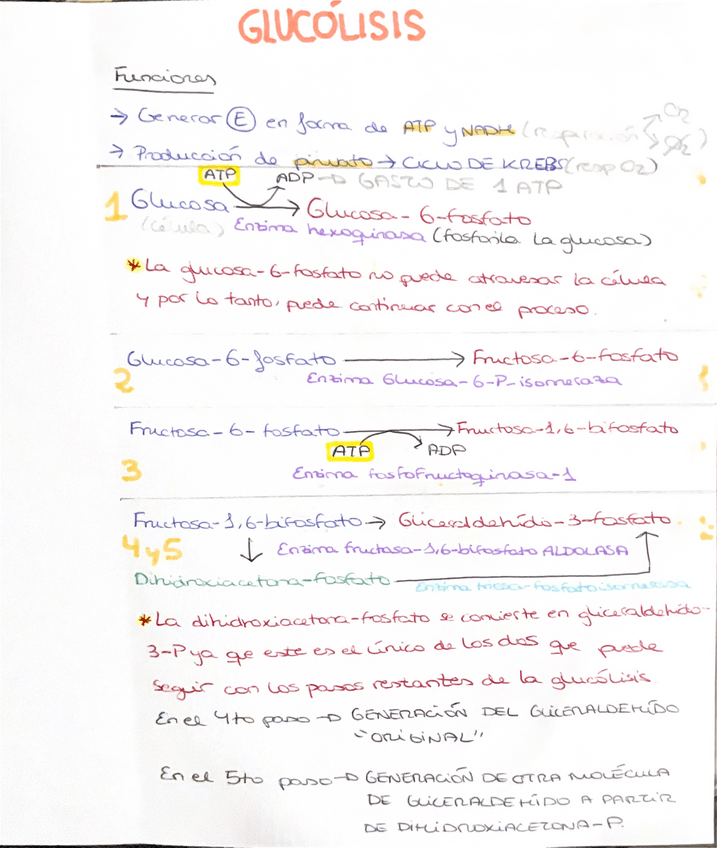 GLUCÓLISIS
Funciones
→ Generar Ⓔ en forma de ATP y NADH (respiración ↗ O2 ↘ O2)
→ Producción de piruvato → CICLO DE KREBS (resp O2)
ATP ADP → GASTO DE 1 ATP
1 Glucosa → Glucosa-6-fosfato
(célula) Enzima hexoginasa (fosforila la glucosa)
* La glucosa-6-fosfato no puede atravesar la célula
y por lo tanto, puede continuar con el proceso.
Glucosa-6-fosfato → Fructosa-6-fosfato
2 Enzima Glucosa-6-P-isomeraza
Fructosa-6-fosfato → Fructosa-1,6-bifosfato
ATP ADP
3 Enzima fosfofructoginasa-1
Fructosa-1,6-bifosfato → Gliceraldehído-3-fosfato
4 y 5 ↓ Enzima fructosa-1,6-bifosfato ALDOLASA
Dihidroxiacetona-fosfato Enzima triosa-fosfato isomerasa
* La dihidroxiacetona-fosfato se convierte en gliceraldehído-
3-P ya qe este es el único de los dos que puede
seguir con los pasos restantes de la glucólisis
En el 4to paso → GENERACIÓN DEL GLICERALDEHÍDO
"ORIGINAL"
En el 5to paso → GENERACIÓN DE OTRA MOLÉCULA
DE GLICERALDEHÍDO A PARTIR
DE DIHIDROXIACEZONA-P.